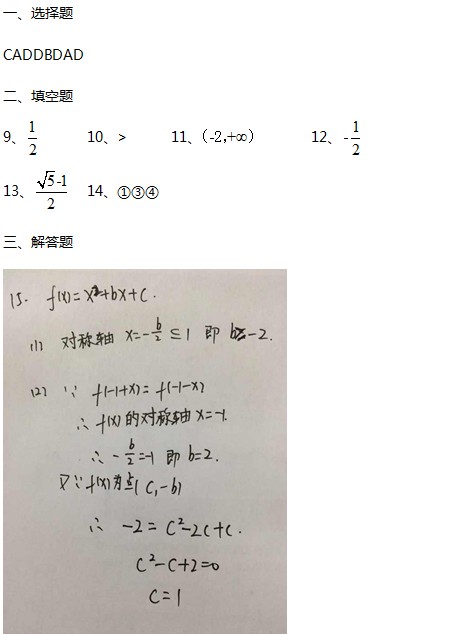 一、选择题
CADDBDAD
二、填空题
9、1/2 10、> 11、(-2,+∞) 12、-1/2
13、(√5-1)/2 14、①③④
三、解答题
15. f(x)=x²+bx+c.
(1) 对称轴 x=-b/2≤1 即 b≥-2.
(2) ∵ f(-1+x)=f(-1-x)
∴ f(x)的对称轴 x=-1.
∴ -b/2=-1 即 b=2.
又∵f(x)过点(c,-b)
∴ -2=c²-2c+c.
c²-c+2=0
c=1